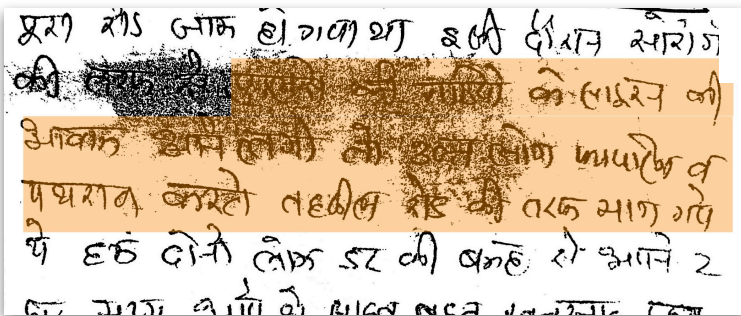 पूरा रोड जाम हो गया था इसी दौरान सोरोंगे
की तरफ से पुलिस की गाडियों के साइरन की
आवाज आने लगी तो उक्त लोग फायरिंग व
पथराव करते तहसील रोड की तरफ भाग गये
थे हम दोनो लोग डर की बजह से अपने २